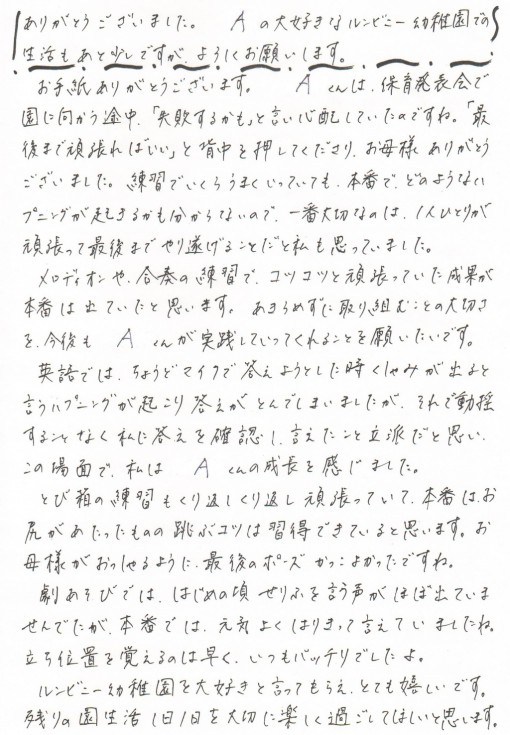 ありがとうございました。 Aの大好きなルンビニー幼稚園での
生活もあと少しですが、ようくお願いします。
お手紙ありがとうございます。 Aくんは、保育発表会で
園に向かう途中、「失敗するかも」と言い心配していたのですね。「最
後まで頑張ればいい」と背中を押してくださり、お母様ありがとう
ございました。練習でいくらうまくいっていても、本番で、どのようなハ
プニングが起きるかも分からないので、一番大切なのは、1人ひとりが
頑張って最後までやり遂げることだと私も思っていました。
メロディオンや、合奏の練習で、コツコツと頑張っていた成果が
本番は出ていたと思います。あきらめずに取り組むことの大切さ
を、今後も Aくんが実践していってくれることを願いたいです。
英語では、ちょうどマイクで答えようとした時くしゃみが出ると
言うハプニングが起こり答えがとんでしまいましたが、それで動揺
することなく私に答えを確認し、言えたこと立派だと思い、
この場面で、私は Aくんの成長を感じました。
とび箱の練習もくり返しくり返し頑張っていて、本番は、お
尻があたったものの跳ぶコツは習得できていると思います。お
母様がおっしゃるように、最後のポーズかっこよかったですね。
劇あそびでは、はじめの頃せりふを言う声がほぼ出ていま
せんでたが、本番では、元気よくはりきって言えていましたね。
立ち位置を覚えるのは早く、いつもバッチリでしたよ。
ルンビニー幼稚園を大好きと言ってもらえ、とても嬉しいです。
残りの園生活1日1日を大切に楽しく過ごしてほしいと思います。